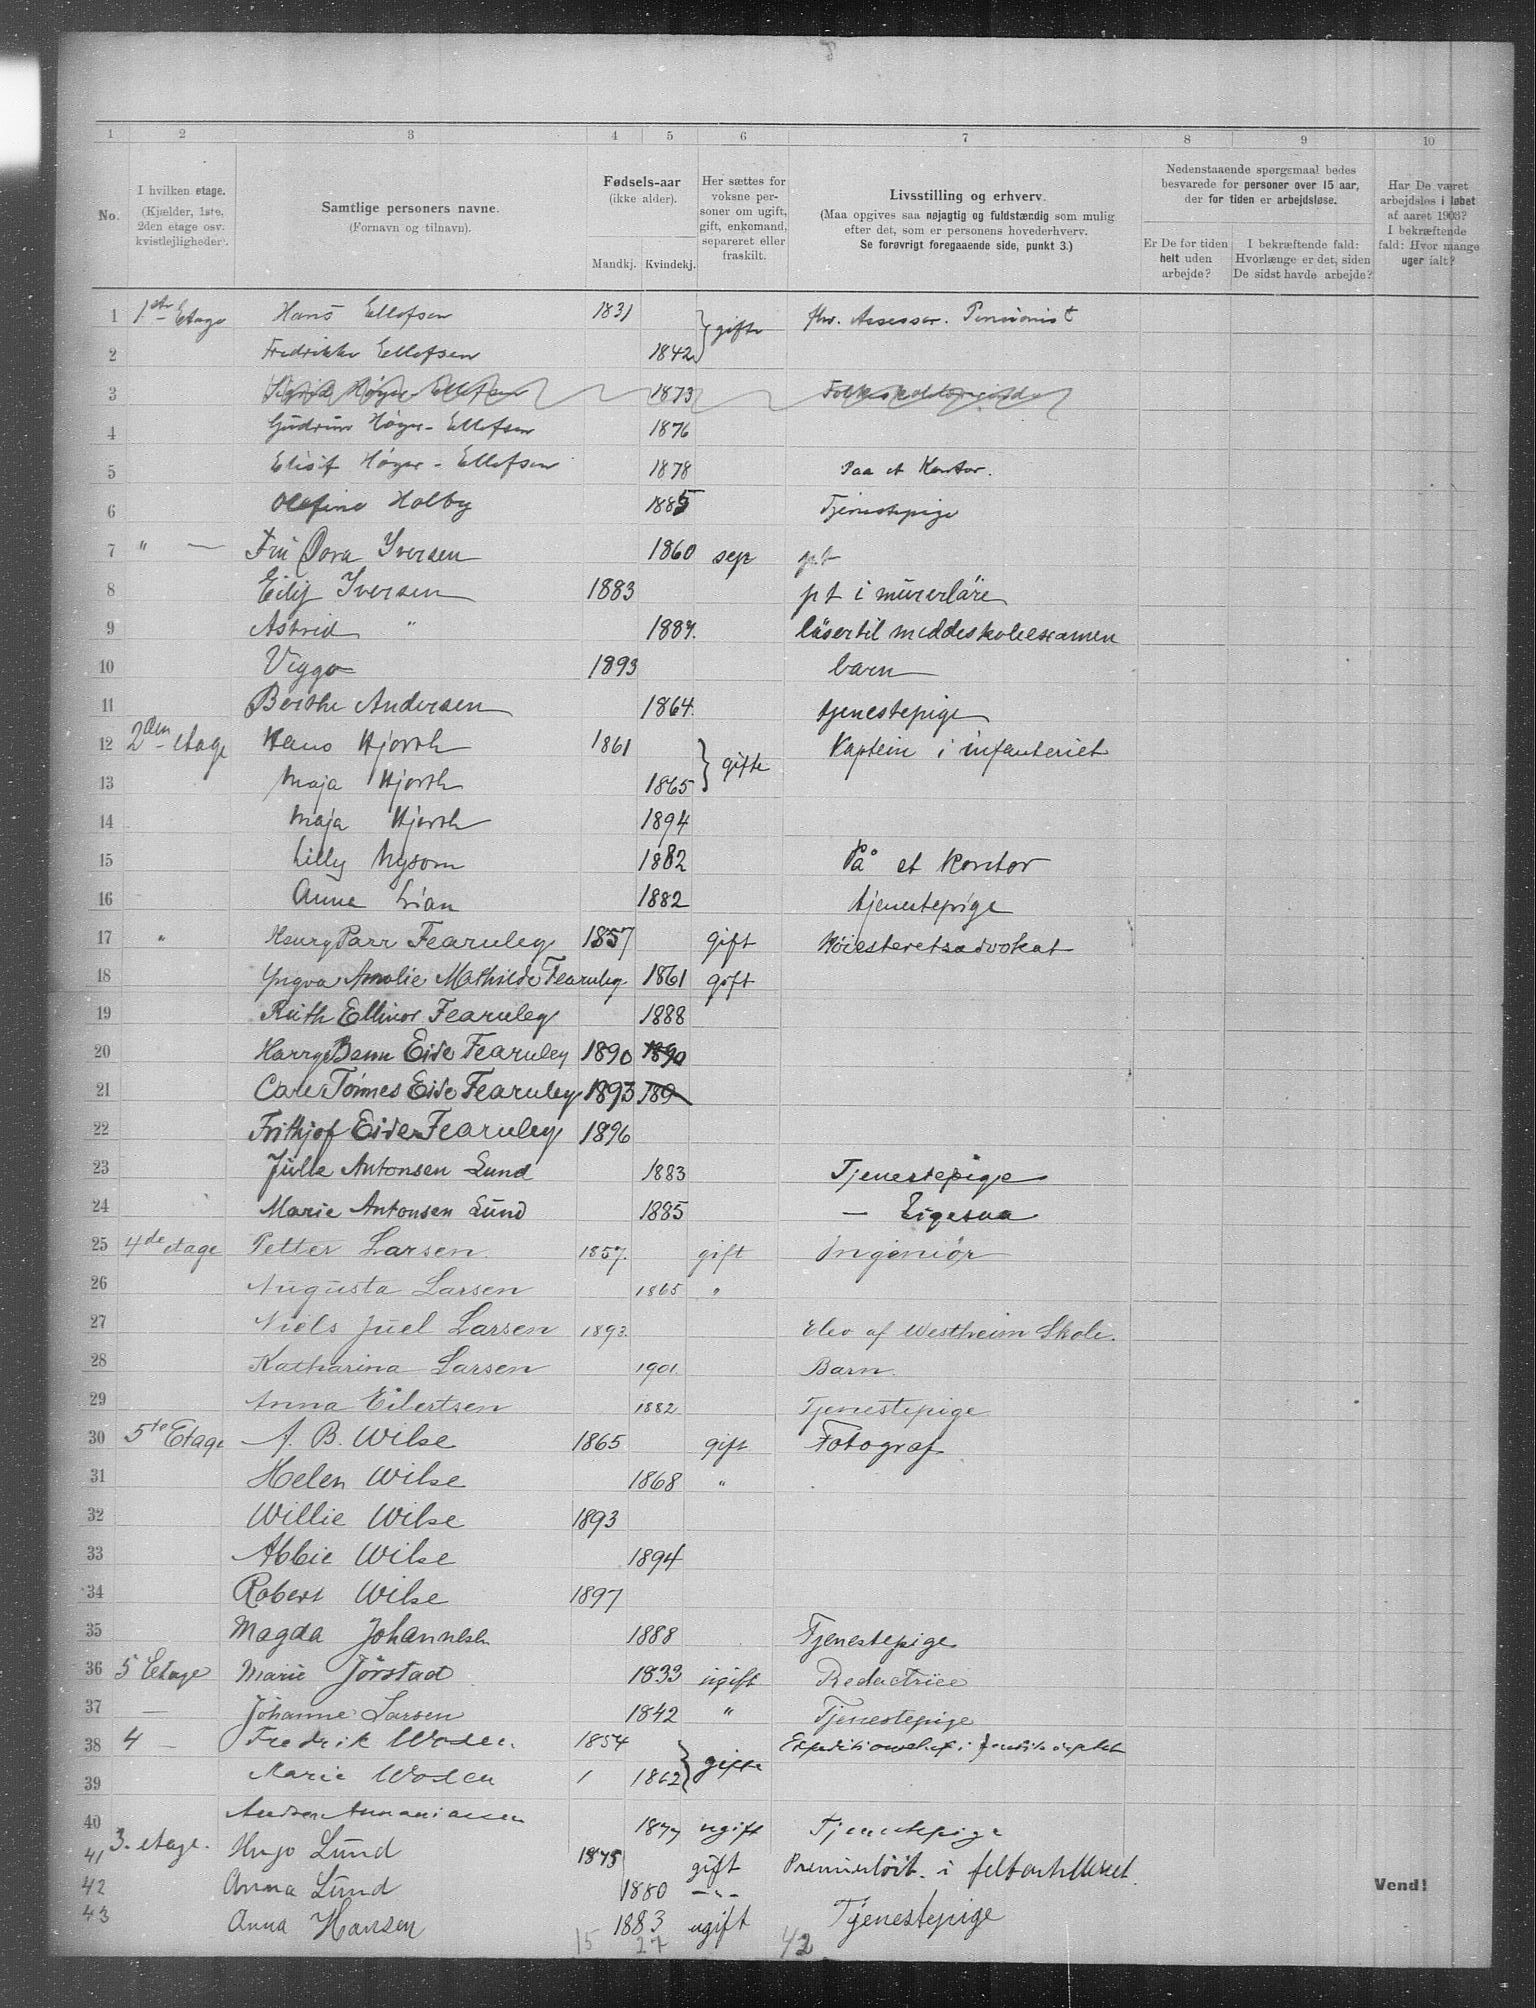 1 2 3 4 5 6 7 8 9 10
No.
I hvilken etage. (Kjælder, 1ste, 2den etage osv. kvistlejligheder).
Samtlige personers navne. (Fornavn og tilnavn).
Fødsels-aar (ikke alder).
Mandkj. Kvindekj.
Her sættes for voksne personer om ugift, gift, enkemand, separeret eller fraskilt.
Livsstilling og erhverv.
(Maa opgives saa nøjagtig og fuldstændig som mulig efter det, som er personens hovederhverv.
Se forøvrigt foregaaende side, punkt 3.)
Nedenstaaende spørgsmaal bedes besvarede for personer over 15 aar, der for tiden er arbejdsløse.
Er De for tiden helt uden arbejde?
I bekræftende fald: Hvorlænge er det, siden De sidst havde arbejde?
Har De været arbejdsløs i løbet af aaret 1903? I bekræftende fald: Hvor mange uger ialt?
1 1ste Etage Hans Ellefsen 1831 gifte fhv. Assessor. Pensionist
2 Fredrikke Ellefsen 1842
3 Sigrid Høyer Ellefsen 1873
4 Gudrun Høyer-Ellefsen 1876
5 Elisif Høyer-Ellefsen 1878 Paa et Kontor.
6 Olefine Holby 1885 Tjenestepige
7 " — Fru Dora Iversen 1860 sep pt
8 Eilif Iversen 1883 pt i murerläre
9 Astrid " 1887. läser til middelskoleexamen
10 Viggo 1893 barn
11 Berthe Andersen 1864. tjenestepige
12 2den etage Hans Hjorth 1861 gifte Kaptein i infanteriet
13 Maja Hjorth 1865
14 Maja Hjorth 1894
15 Lilly Nysom 1882 På et kontor
16 Anna Lian 1882 tjenestepige
17 " Henry Parr Fearnley 1857 gift Høiesteretsadvokat
18 Yngva Amalie Mathilde Fearnley 1861 gift
19 Ruth Ellinor Fearnley 1888
20 Harry Benn Eide Fearnley 1890 1890
21 Carl Tönnes Eide Fearnley 1893 189
22 Frithjof Eide Fearnley 1896
23 Julle Antonsen Lund 1883 Tjenestepige
24 Marie Antonsen Lund 1885 — Ligesaa
25 4de etage Petter Larsen. 1857. gift Ingeniör
26 Augusta Larsen 1865 "
27 Niels Juel Larsen 1893. Elev af Westheim Skole.
28 Katharina Larsen 1901. Barn.
29 Anna Eilertsen 1882 Tjenestepige
30 5te Etage A. B. Wilse 1865 gift Fotograf
31 Helen Wilse 1868 "
32 Willie Wilse 1893
33 Abbie Wilse 1894
34 Robert Wilse 1897
35 Magda Johannesen 1888 Tjenestepige
36 5 Etage Marie Jörstad 1833 ugift Redactrice
37 — Johanne Larsen 1842 " Tjenestepige
38 4 — Fredrik Woxen. 1854 gifte Expeditionschef i
39 Marie Woxen 1 1862
40 1877 ugift Tjenestepige
41 3. etage. Hugo Lund 1875 gift Premierlöit. i feltartilleriet.
42 Anna Lund 1880 —"—
43 Anna Hansen 1883 ugift Tjenestepige
Vend!
15 27 42